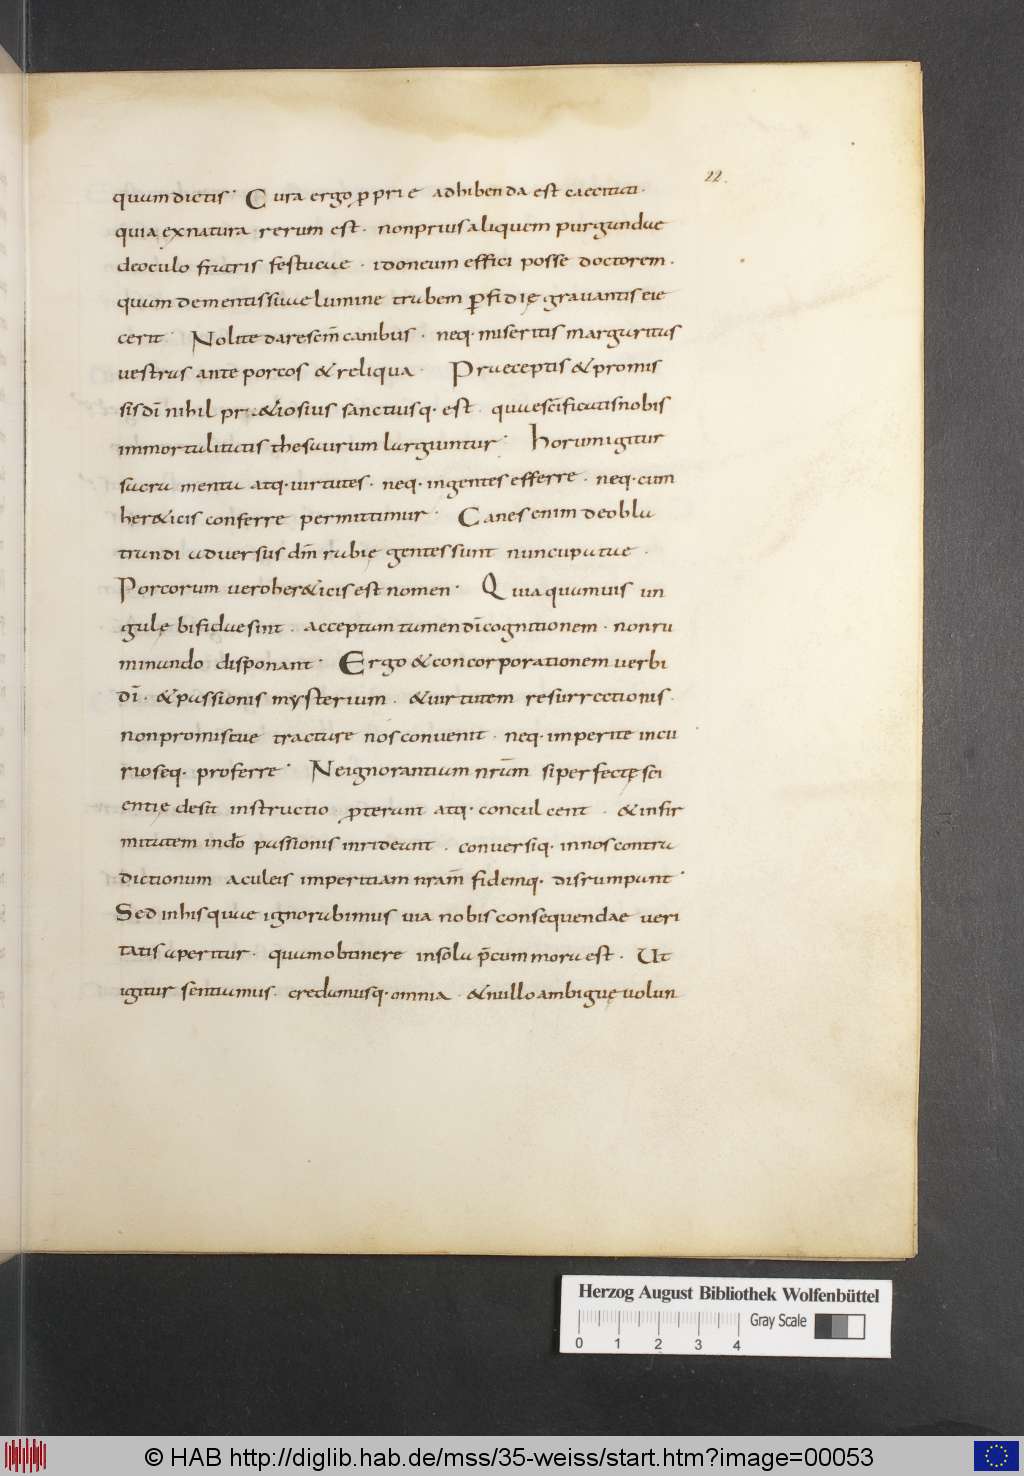 22.
quam dictis· Cura ergo ꝓprie adhibenda est caecitati·
quia ex natura rerum est· non prius aliquem purgandae
de oculo fratris festucae · idoneum effici posse doctorem·
quam de mentis suae lumine trabem ꝑfidię gravantis eie
cerit· Nolite dare scm̄ canibus · neq· miseritis margaritas
vestras ante porcos & reliqua· Praeceptis & promis
sis dī nihil pr&iosius sanctiusq· est· quae scīficatis nobis
immortalitatis thesaurum largiuntur· Horum igitur
sacra menta atq· uirtutes· neq· ingentes efferre · neq· cum
her&icis conferre permittimur · Canes enim de obla
trandi aduersus dm̄ rabię gentes sunt nuncupatae ·
Porcorum uero her&icis est nomen· Quia quamuis un
gulę bifidae sint· acceptam tamen dī cognitionem · non ru
minando disponant· Ergo & concorporationem uerbi
dī· & passionis mysterium· & uirtutem resurrectionis·
non promiscue tractare nos conuenit· neq· imperite incu
rioseq· proferre· Ne ignorantium nr̄um si perfectę sci
entię desit instructio ꝓterant atq· conculcent · & infir
mitatem in dō passionis inrideant · conuersiq· in nos contra
dictionum aculeis imperitiam nr̄am fidemq· disrumpant·
Sed in his quae ignorabimus uia nobis consequendae ueri
tatis aperitur· quam obtinere in sola p̄cum mora est· Ut
igitur sentiamus· credamusq· omnia· & nullo ambiguę uolun
Herzog August Bibliothek Wolfenbüttel
Gray Scale
0 1 2 3 4
© HAB http://diglib.hab.de/mss/35-weiss/start.htm?image=00053